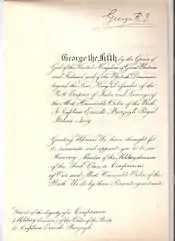 George R. I.
George the Fifth by the Grace of
God of the United Kingdom of Great Britain
and Ireland and of the British Dominions
beyond the Seas, King, Defender of the
Faith, Emperor of India and Sovereign of
the Most Honourable Order of the Bath,
To Captain Royal
Greeting Whereas We have thought fit
to nominate and appoint you to be an
Member of the Military division
of the Third Class or Companion
of Our said Most Honourable Order of the
Bath We do by these Presents
Grant of the dignity of a Companion
Military division of the Order of the Bath
to Captain